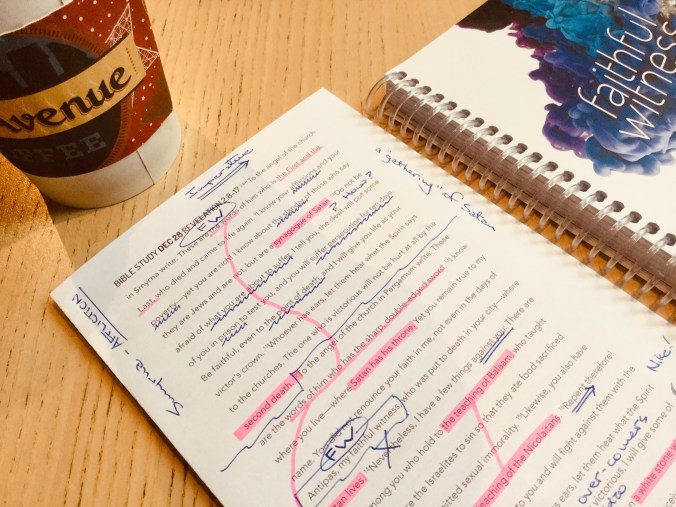 Avenue
COFFEE
faithful
witness
Imperative
BIBLE STUDY DEC 28 REVELATION 2.8-17 "To the angel of the church
FW
in Smyrna write: These are the words of him who is the First and the
Last, who died and came to life again. "I know your afflictions and your
poverty—yet you are rich! I know about the slander of those who say
they are Jews and are not, but are a synagogue of Satan. "Do not be
? How?
afraid of what you are about to suffer. I tell you, the devil will put some
of you in prison to test you, and you will suffer persecution for ten days.
Be faithful, even to the point of death, and I will give you life as your
victor's crown. "Whoever has ears, let them hear what the Spirit says
to the churches. The one who is victorious will not be hurt at all by the
second death. "To the angel of the church in Pergamum write: These
are the words of him who has the sharp, double-edged sword. "I know
where you live—where Satan has his throne. Yet you remain true to my
name. You did not renounce your faith in me, not even in the days of
FW
Antipas, my faithful witness, who was put to death in your city—where
tan lives. "Nevertheless, I have a few things against you: There are
among you who hold to the teaching of Balaam, who taught
the Israelites to sin so that they ate food sacrificed
mitted sexual immorality. "Likewise, you also have
teaching of the Nicolaitans. "Repent therefore!
to you and will fight against them with the
ears, let them hear what the Spirit
victorious, I will give some of
a white stone
"gathering" of Satan
Smyrna - AFFLICTION
Nike!
over-comers